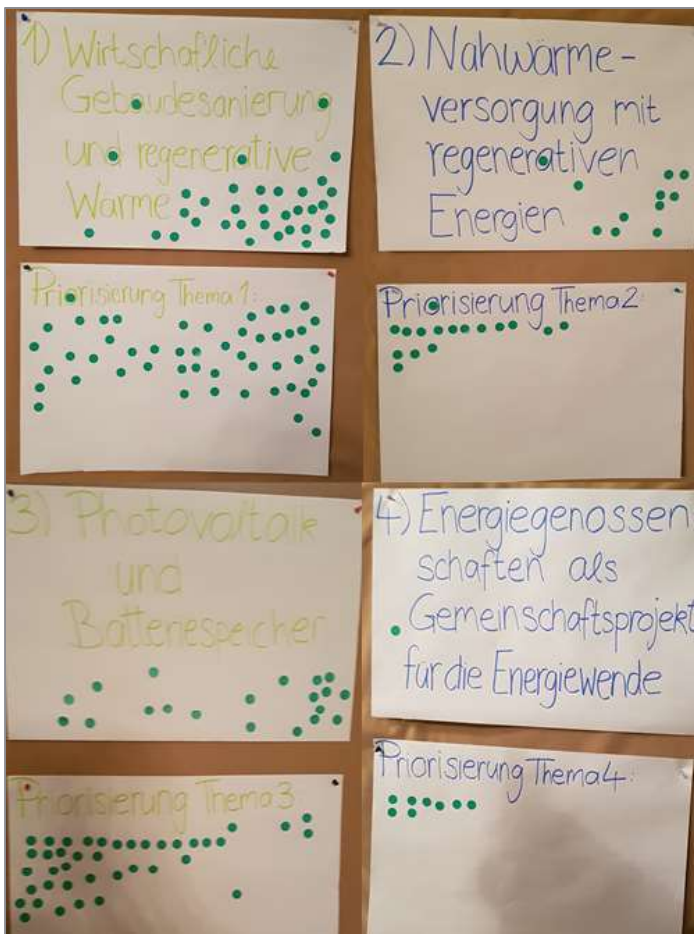 1) Wirtschafliche
Gebäudesanierung
und regenerative
Wärme
Priorisierung Thema 1:
2) Nahwärme-
versorgung mit
regenerativen
Energien
Priorisierung Thema 2:
3) Photovoltaik
und
Batteriespeicher
Priorisierung Thema 3
4) Energiegenossen
schaften als
Gemeinschaftsprojekt
für die Energiewende
Priorisierung Thema 4: